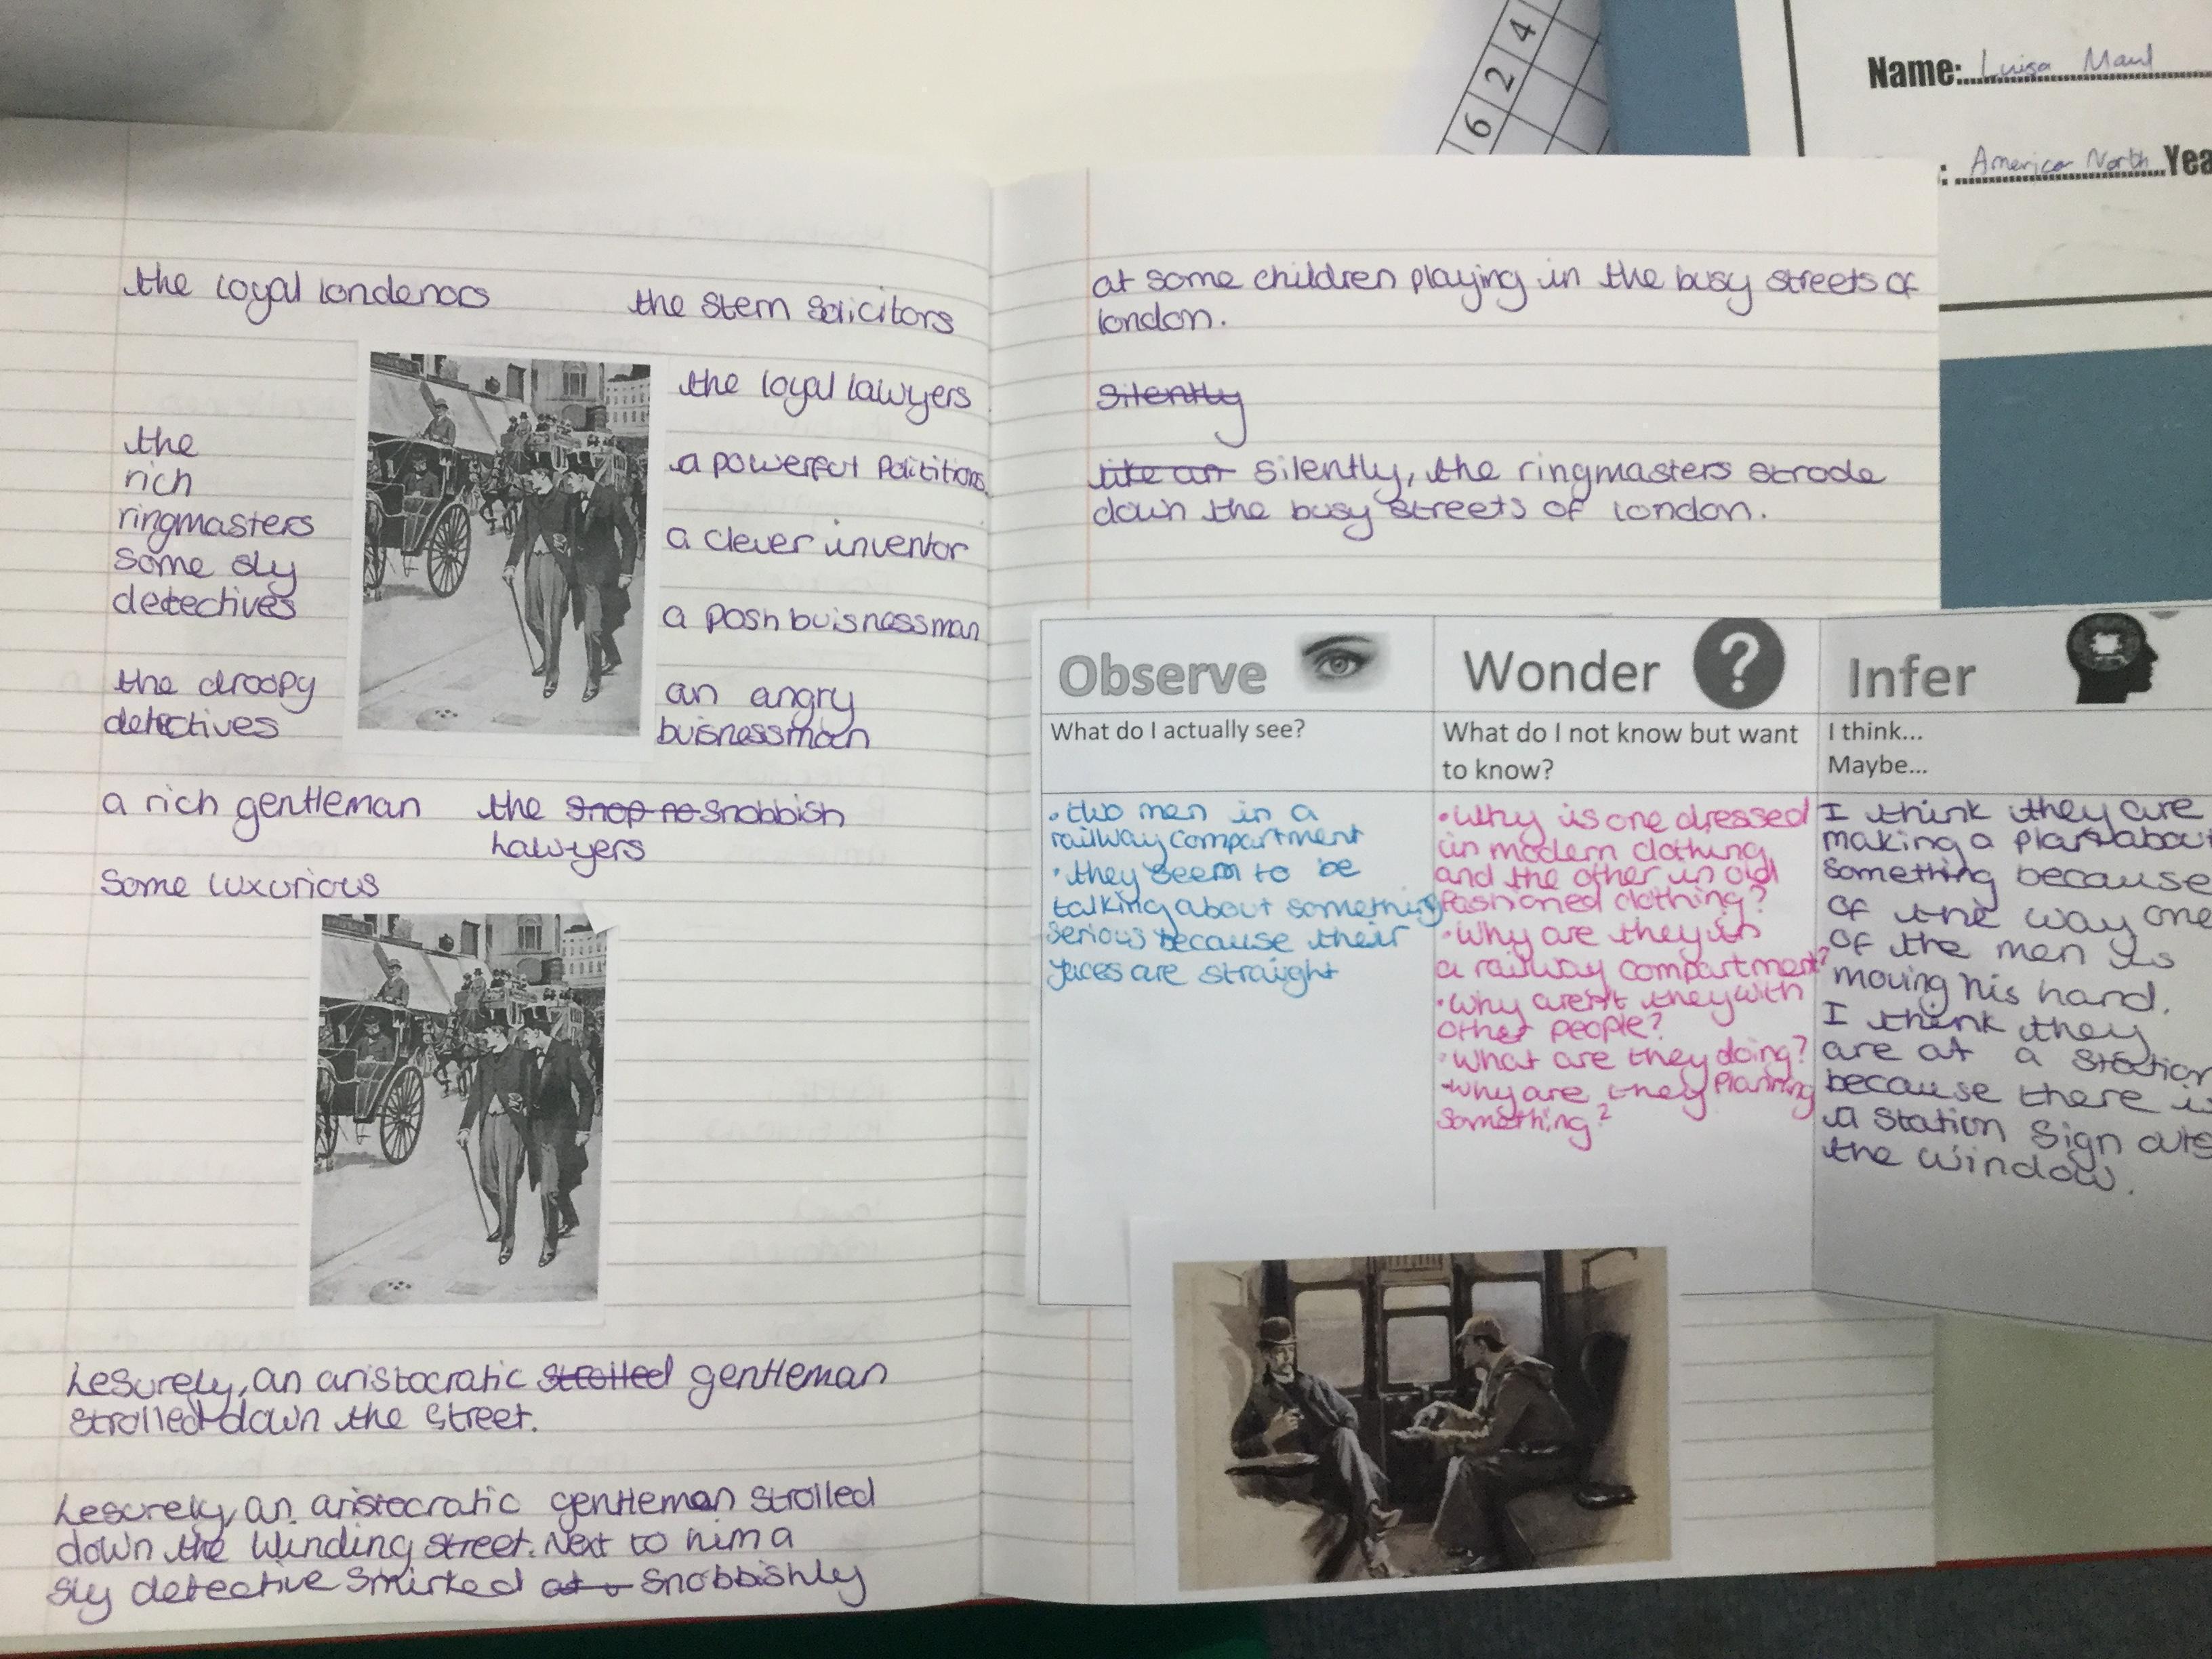 4
2
6
Name: Luisa
: America North Yea
the loyal londenors
the stern Solicitors
the loyal lawyers
a powerful Polititions
a clever inventor
a posh buisnessman
an angry
buisnessman
the
rich
ringmasters
Some sly
detectives
the droopy
detectives
a rich gentleman
the Snobbish
Lawyers
Some luxurious
Lesurely, an aristocratic strolled gentleman
strolled down the Street.
Lesurely, an aristocratic gentleman strolled
down the winding street. Next to him a
sly detective smirked at a snobbishly
at some children playing in the busy streets of
london.
Silently
like an Silently, the ringmasters strode
down the busy streets of london.
Observe
What do I actually see?
• two men in a
railway compartment
• they seem to be
talking about something
serious because their
faces are straight
Wonder ?
What do I not know but want
to know?
• Why is one dressed
in modern clothing
and the other in old
fashioned clothing?
• Why are they in
a railway compartment?
• Why aren't they with
other people?
• What are they doing?
• Why are they planning
something?
Infer
I think...
Maybe...
I think they are
making a plan about
something because
of the way one
of the men is
moving his hand.
I think they
are at a station
because there is
a station sign outs
the window.